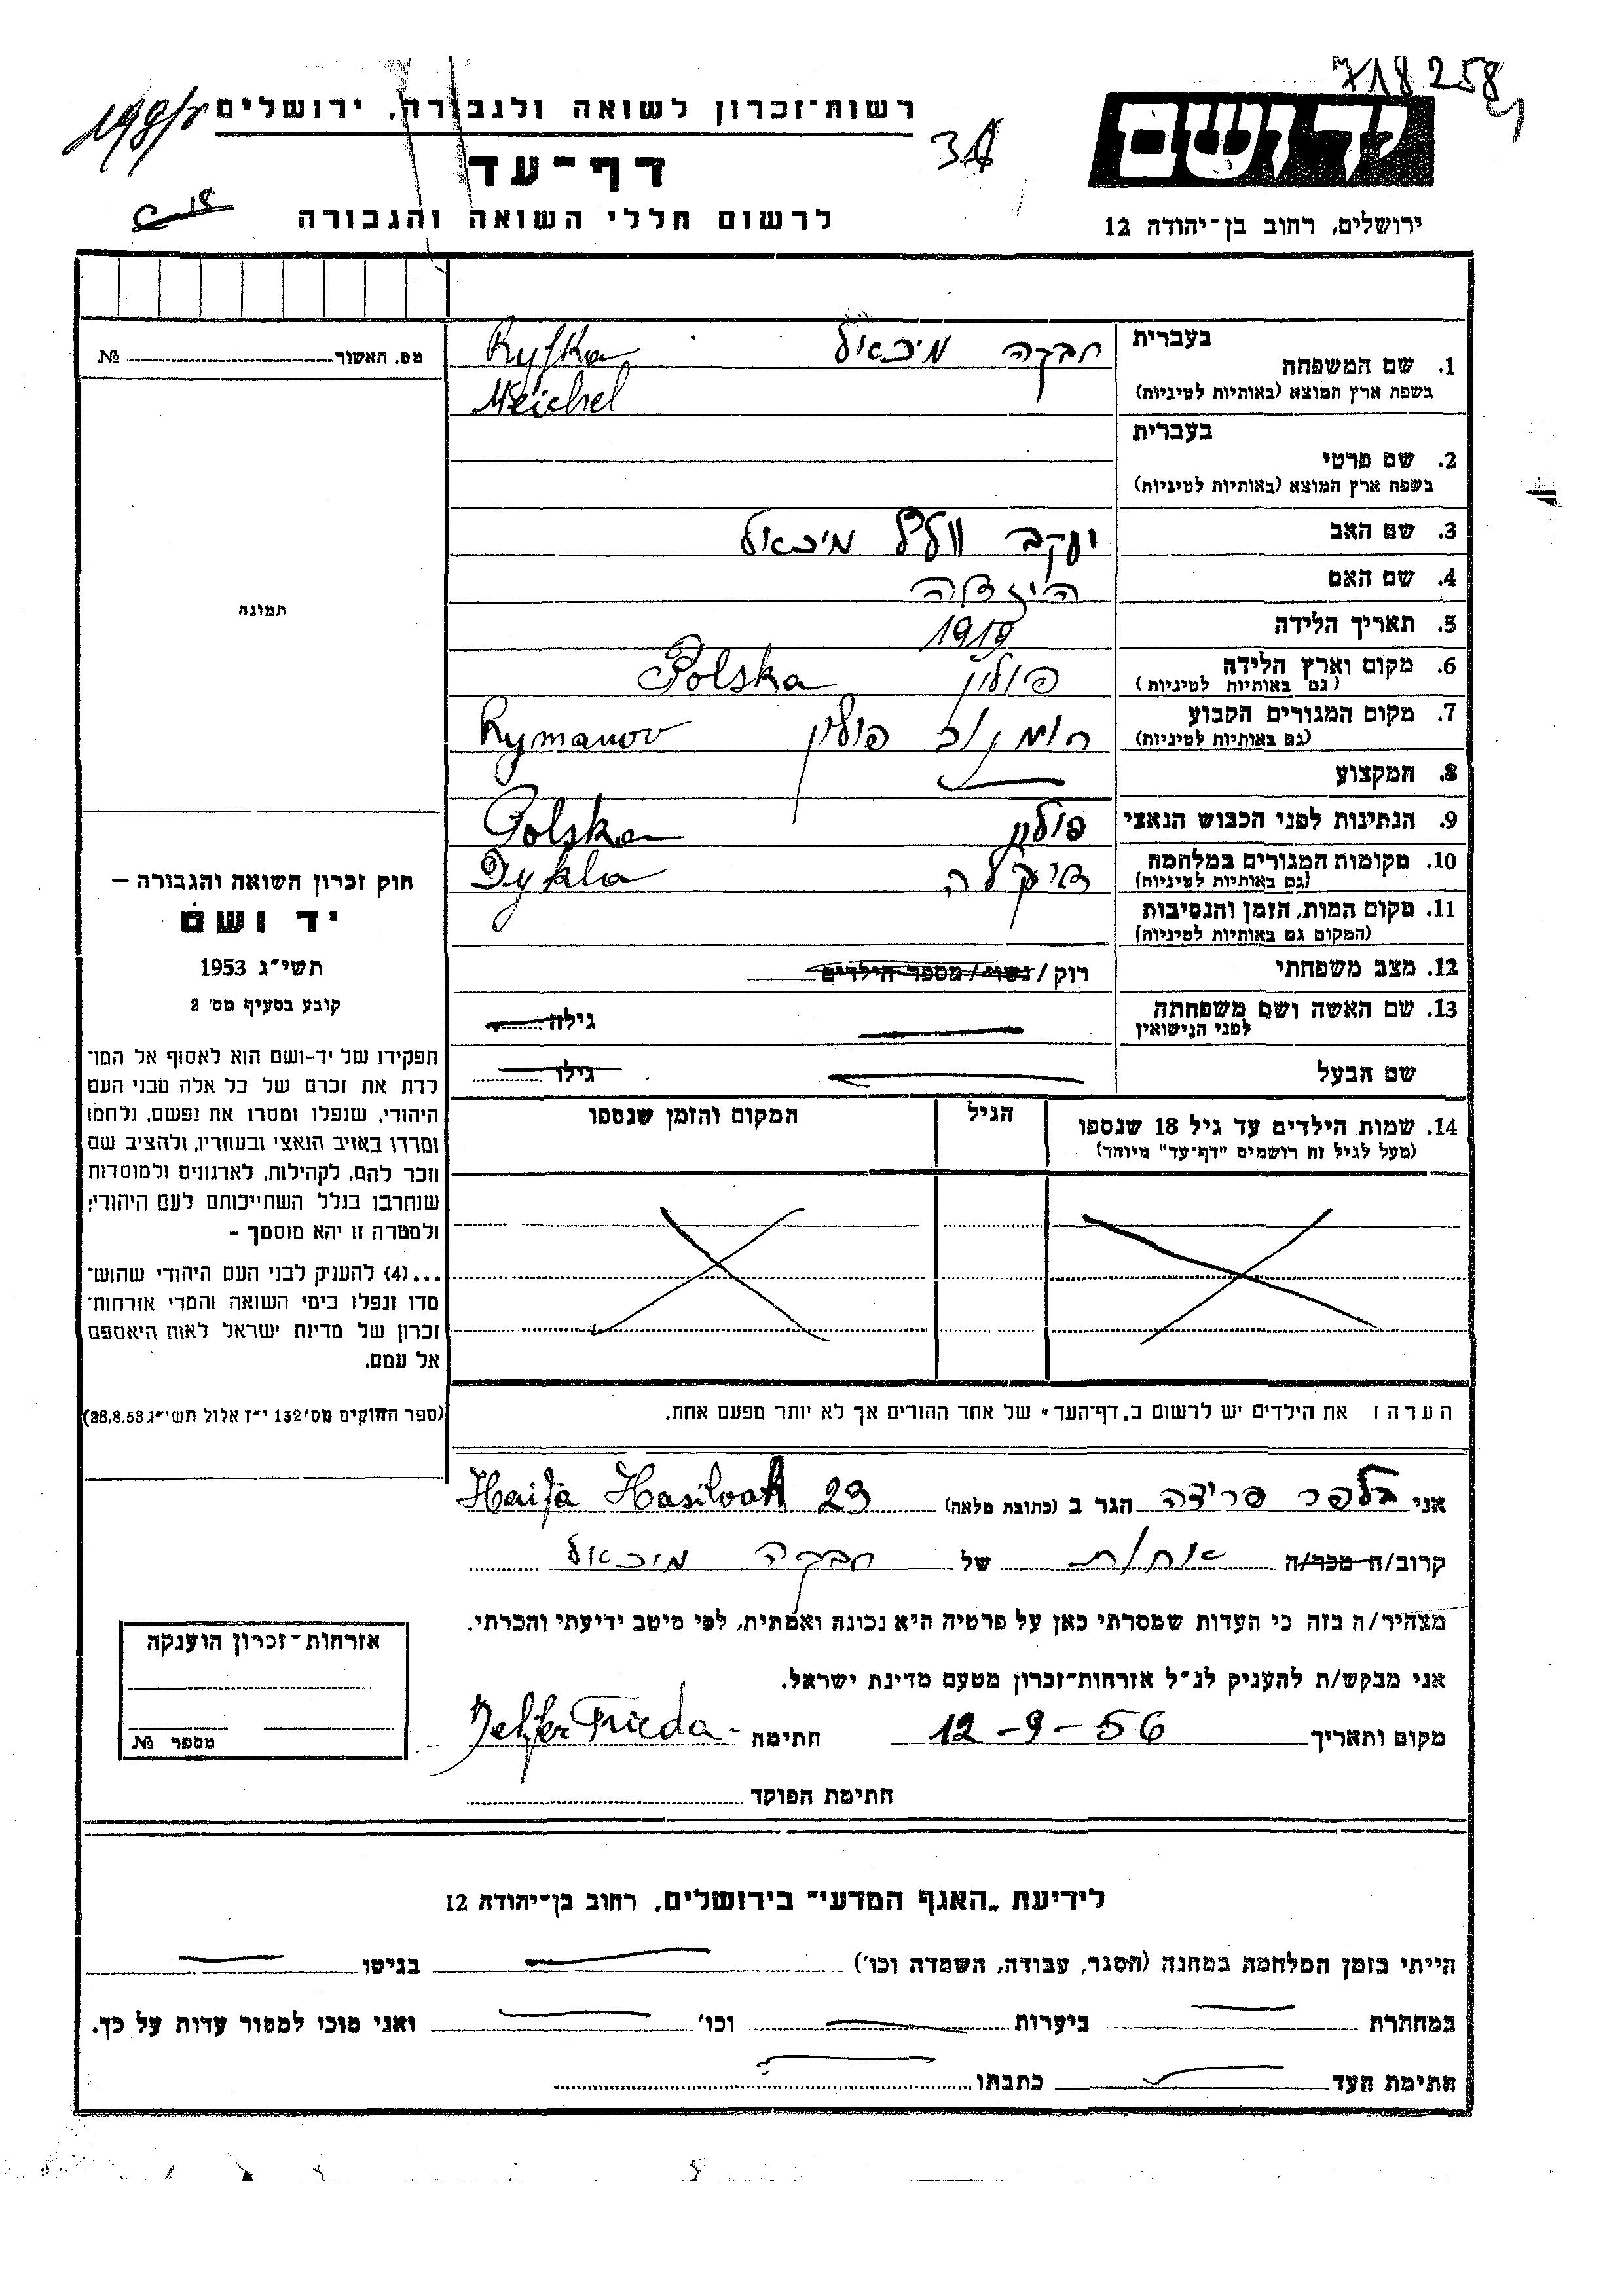 718258
רשות־זכרון לשואה ולגבורה, ירושלים
דף־עד
לרשום חללי השואה והגבורה
יד ושם
ירושלים, רחוב בן־יהודה 12
מס. האשור № 
1. שם המשפחה בעברית מיכאל
בשפת ארץ המוצא (באותיות לטיניות) Ryfka Meichel
2. שם פרטי בעברית
בשפת ארץ המוצא (באותיות לטיניות)
3. שם האב יעקב וולף מיכאל
4. שם האם
5. תאריך הלידה 1919
6. מקום וארץ הלידה פולין Polska
(גם באותיות לטיניות)
7. מקום המגורים הקבוע רומנוב פולין Rymanov
(גם באותיות לטיניות)
8. המקצוע
9. הנתינות לפני הכבוש הנאצי פולין Polska
10. מקומות המגורים במלחמה דיקלה Dykla
(גם באותיות לטיניות)
11. מקום המות, הזמן והנסיבות
(המקום גם באותיות לטיניות)
12. מצב משפחתי רוק / נשוי / מספר הילדים
13. שם האשה ושם משפחתה לפני הנישואין גילה
שם הבעל גילו
14. שמות הילדים עד גיל 18 שנספו הגיל המקום והזמן שנספו
(מעל לגיל זה רושמים "דף־עד" מיוחד)
תמונה
חוק זכרון השואה והגבורה –
יד ושם
תשי״ג 1953
קובע בסעיף מס׳ 2
תפקידו של יד-ושם הוא לאסוף אל המו־
לדת את זכרם של כל אלה מבני העם
היהודי, שנפלו ומסרו את נפשם, נלחמו
ומרדו באויב הנאצי ובעוזריו, ולהציב שם
וזכר להם, לקהילות, לארגונים ולמוסדות
שנחרבו בגלל השתייכותם לעם היהודי;
ולמטרה זו יהא מוסמך –
...(4) להעניק לבני העם היהודי שהוש־
מדו ונפלו בימי השואה והמרי אזרחות־
זכרון של מדינת ישראל לאות היאספם
אל עמם.
(ספר החוקים מס׳ 132 י״ז אלול תשי״ג 28.8.53)
הערה: את הילדים יש לרשום ב„דף־העד״ של אחד ההורים אך לא יותר מפעם אחת.
אני בלפר פרידה הגר ב (כתובת מלאה) Haifa 23
קרוב/ה מכר/ה אחות של מיכאל
מצהיר/ה בזה כי העדות שמסרתי כאן על פרטיה היא נכונה ואמתית, לפי מיטב ידיעתי והכרתי.
אני מבקש/ת להעניק לנ״ל אזרחות־זכרון מטעם מדינת ישראל.
מקום ותאריך 12-9-56 חתימה Frieda
חתימת הפוקד
אזרחות־זכרון הוענקה
מספר №
לידיעת „האגף המדעי״ בירושלים, רחוב בן־יהודה 12
הייתי בזמן המלחמה במחנה (הסגר, עבודה, השמדה וכו׳) בגיטו
במחתרת ביערות וכו׳ ואני מוכן למסור עדות על כך.
חתימת העד כתבתו